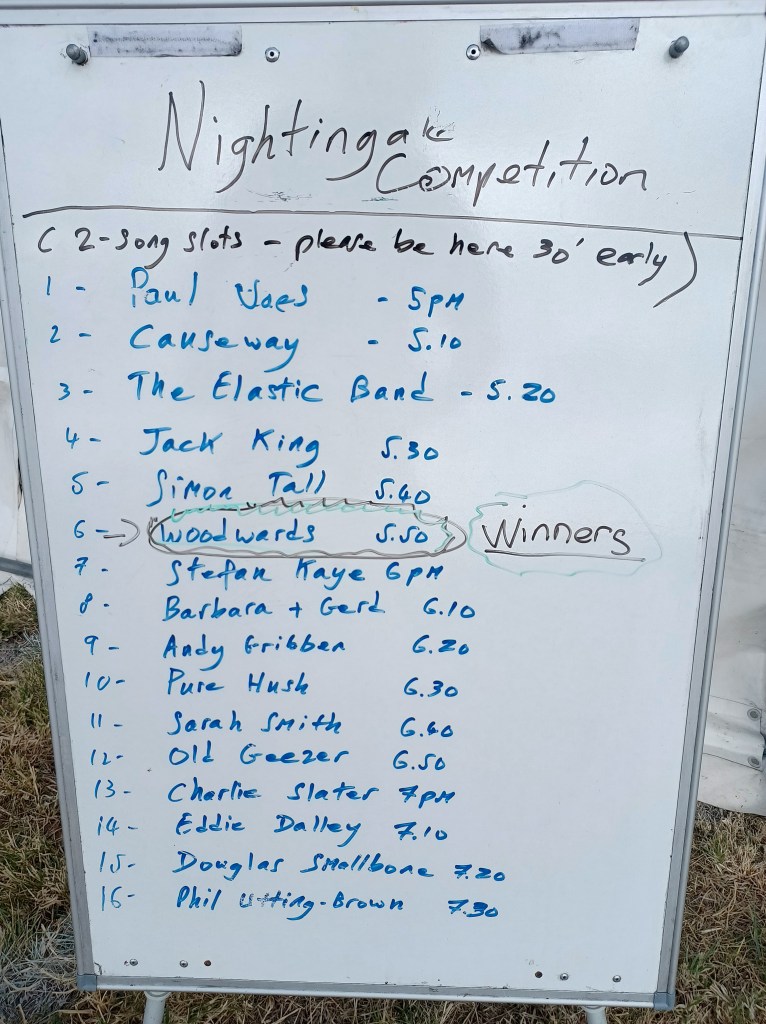 Nightingale
Competition
( 2-song slots - please be here 30' early )
1 - Paul Vaes - 5pm
2 - Causeway - 5.10
3 - The Elastic Band - 5.20
4 - Jack King 5.30
5 - Simon Tall 5.40
6 -> Woodwards 5.50 Winners
7 - Stefan Kaye 6pm
8 - Barbara + Gerd 6.10
9 - Andy Gribben 6.20
10 - Pure Hush 6.30
11 - Sarah Smith 6.40
12 - Old Geezer 6.50
13 - Charlie Slater 7pm
14 - Eddie Dalley 7.10
15 - Douglas Smallbone 7.20
16 - Phil Utting-Brown 7.30